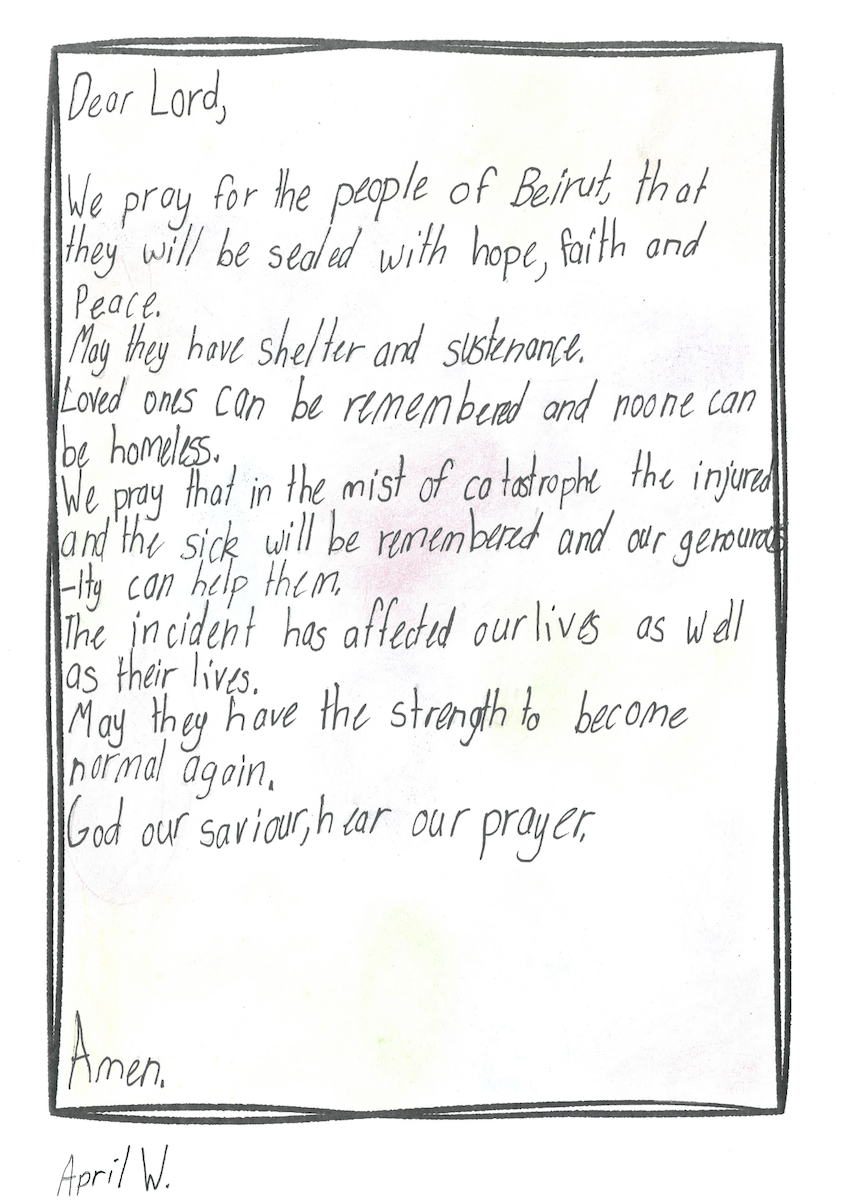 Dear Lord,
We pray for the people of Beirut, that
they will be sealed with hope, faith and
Peace.
May they have shelter and sustenance.
Loved ones can be remembered and noone can
be homeless.
We pray that in the mist of catastrophe the injured
and the sick will be remembered and our
-ity can help them.
The incident has affected our lives as well
as their lives.
May they have the strength to become
normal again.
God our saviour, hear our prayer.
Amen.
April W.